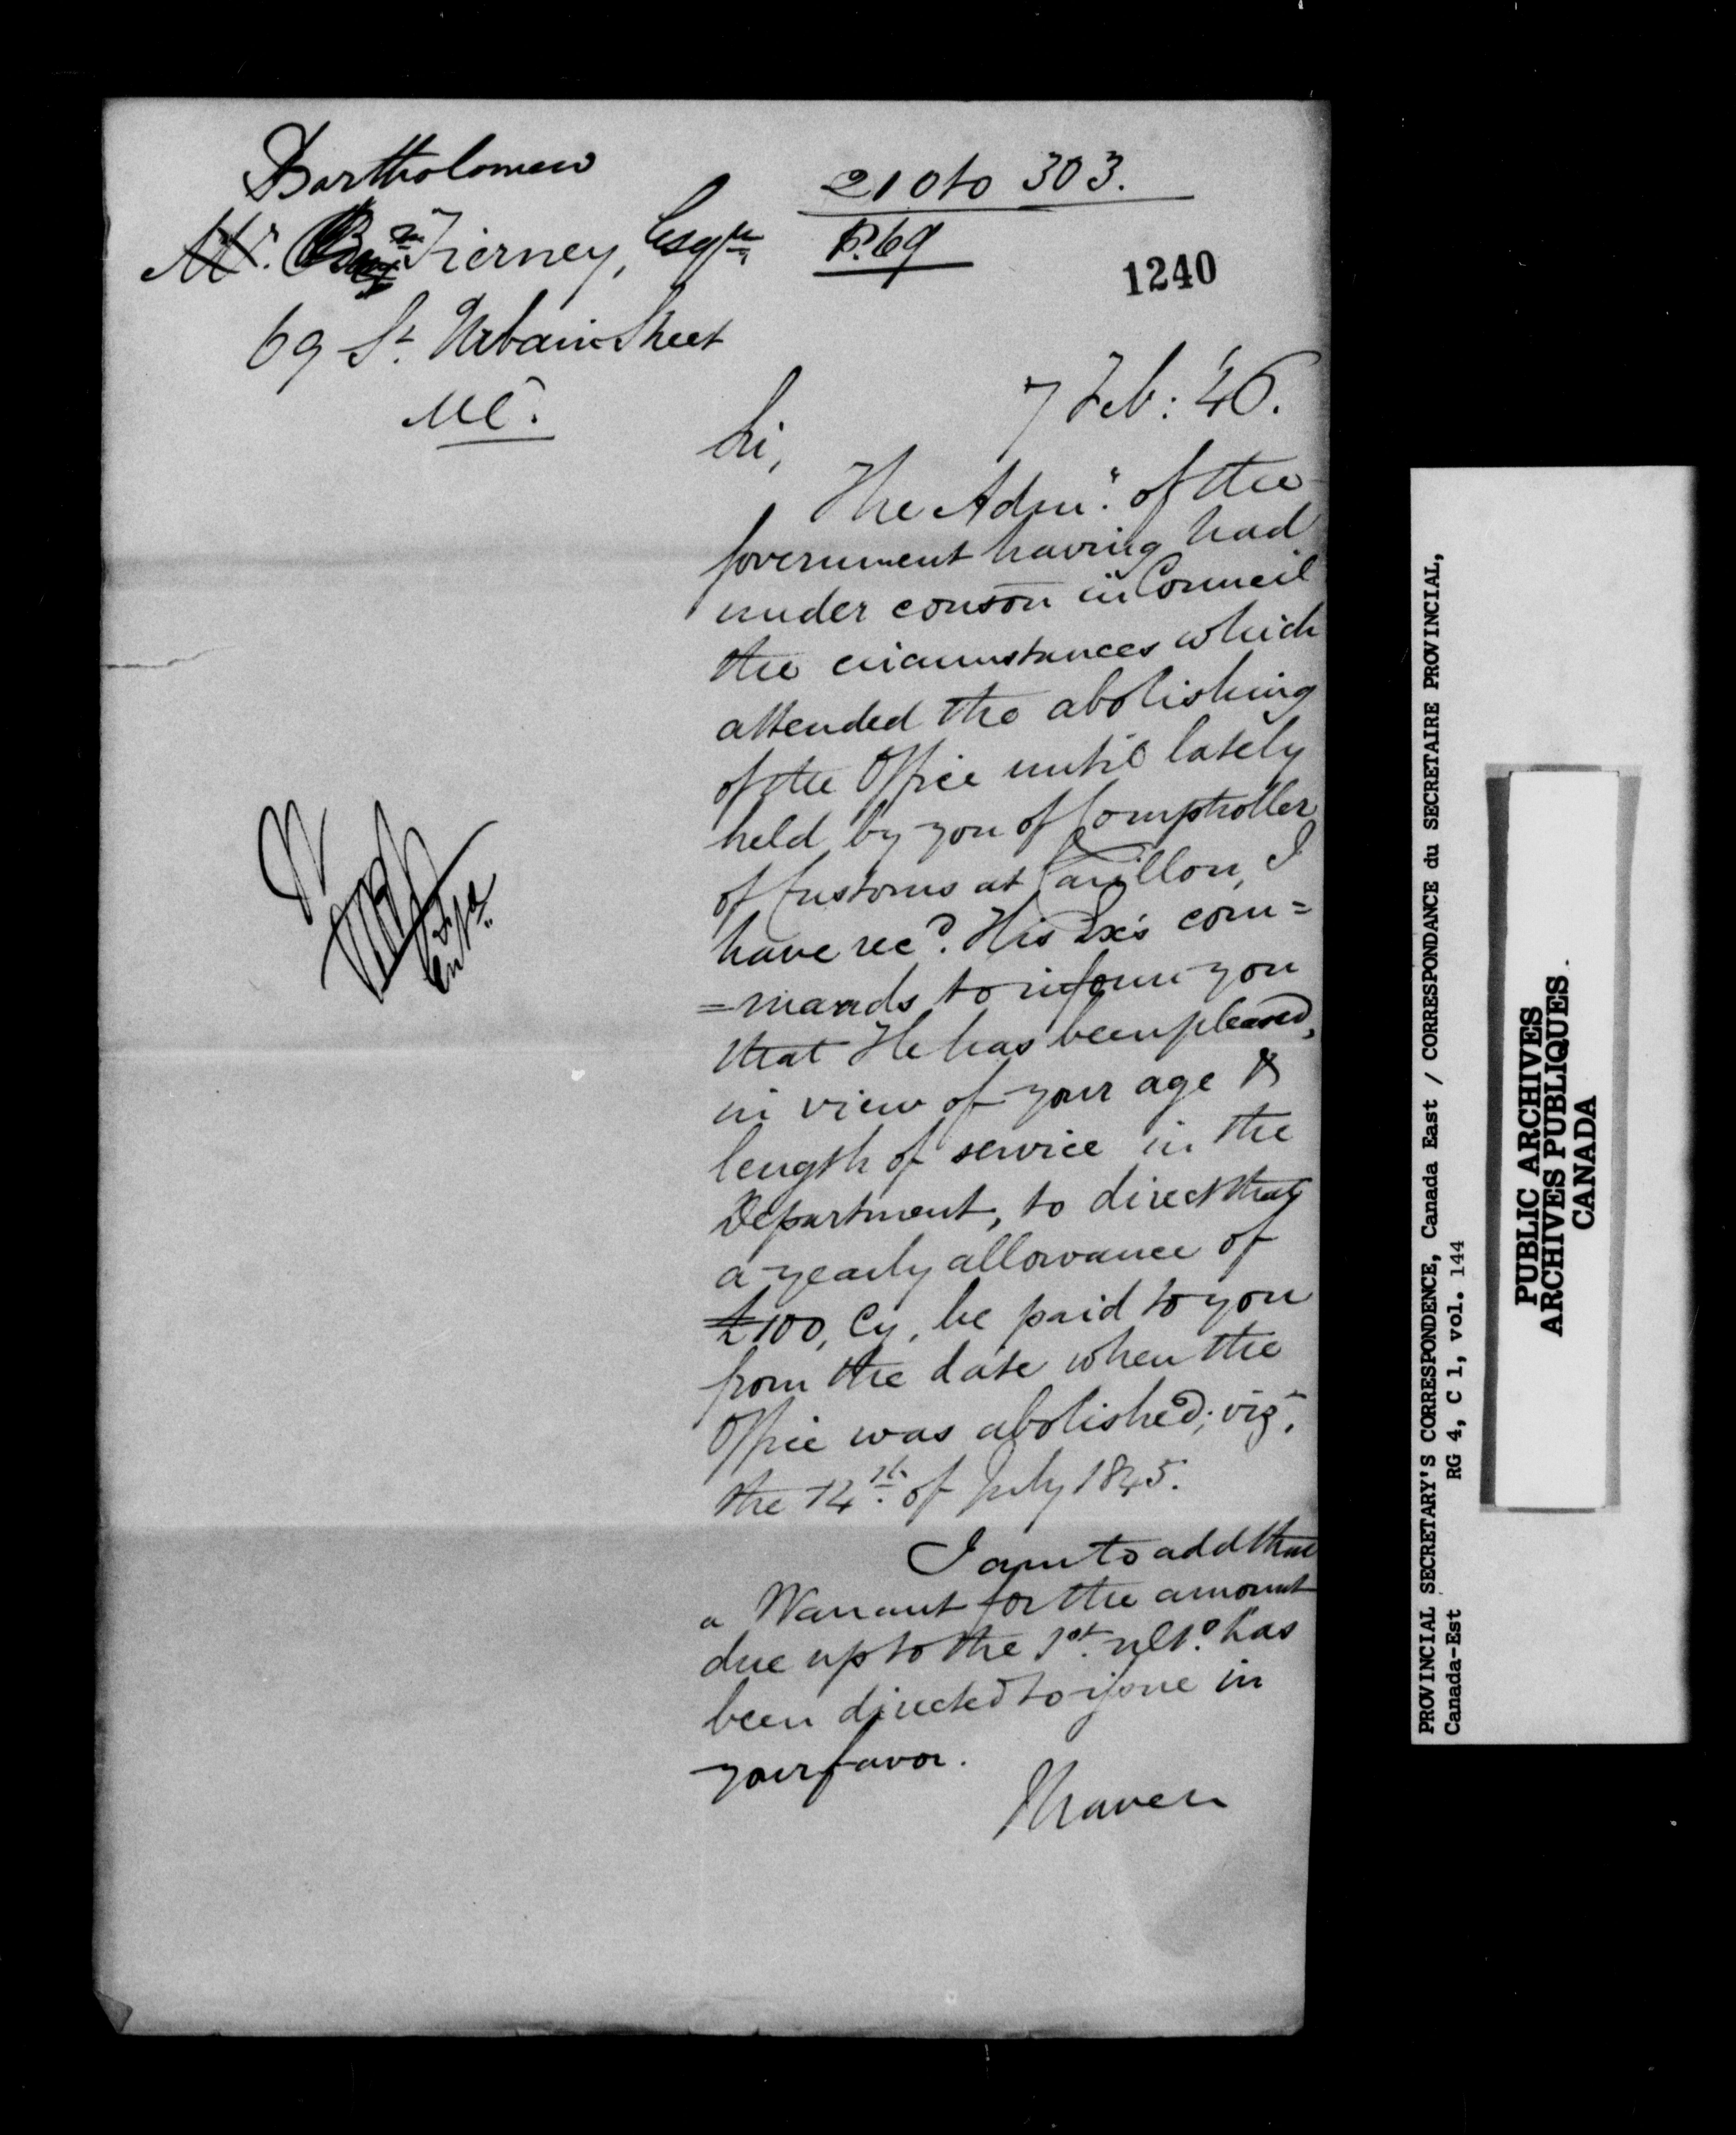 Bartholomew
Mr. Tierney, Esqre
69 St. Urbain Street
Ml.
210 to 303.
P. 69
1240
7 Feb: '46.
Sir,
The Admr. of the
Government having had
under conson in Council
the circumstances which
attended the abolishing
of the Office until lately
held by you of Comptroller
of Customs at Carillon, I
have recd. His Ex's com=
=mands to inform you
that He has been pleased,
in view of your age &
length of service in the
Department, to direct that
a yearly allowance of
£100, Cy, be paid to you
from the date when the
Office was abolished; viz.
the 14th of July 1845.
I am to add that
a Warrant for the amount
due up to the 1st ulto. has
been directed to issue in
your favor.
I have &c
PROVINCIAL SECRETARY'S CORRESPONDENCE, Canada East / CORRESPONDANCE du SECRETAIRE PROVINCIAL,
Canada-Est RG 4, C 1, vol. 144
PUBLIC ARCHIVES
ARCHIVES PUBLIQUES
CANADA